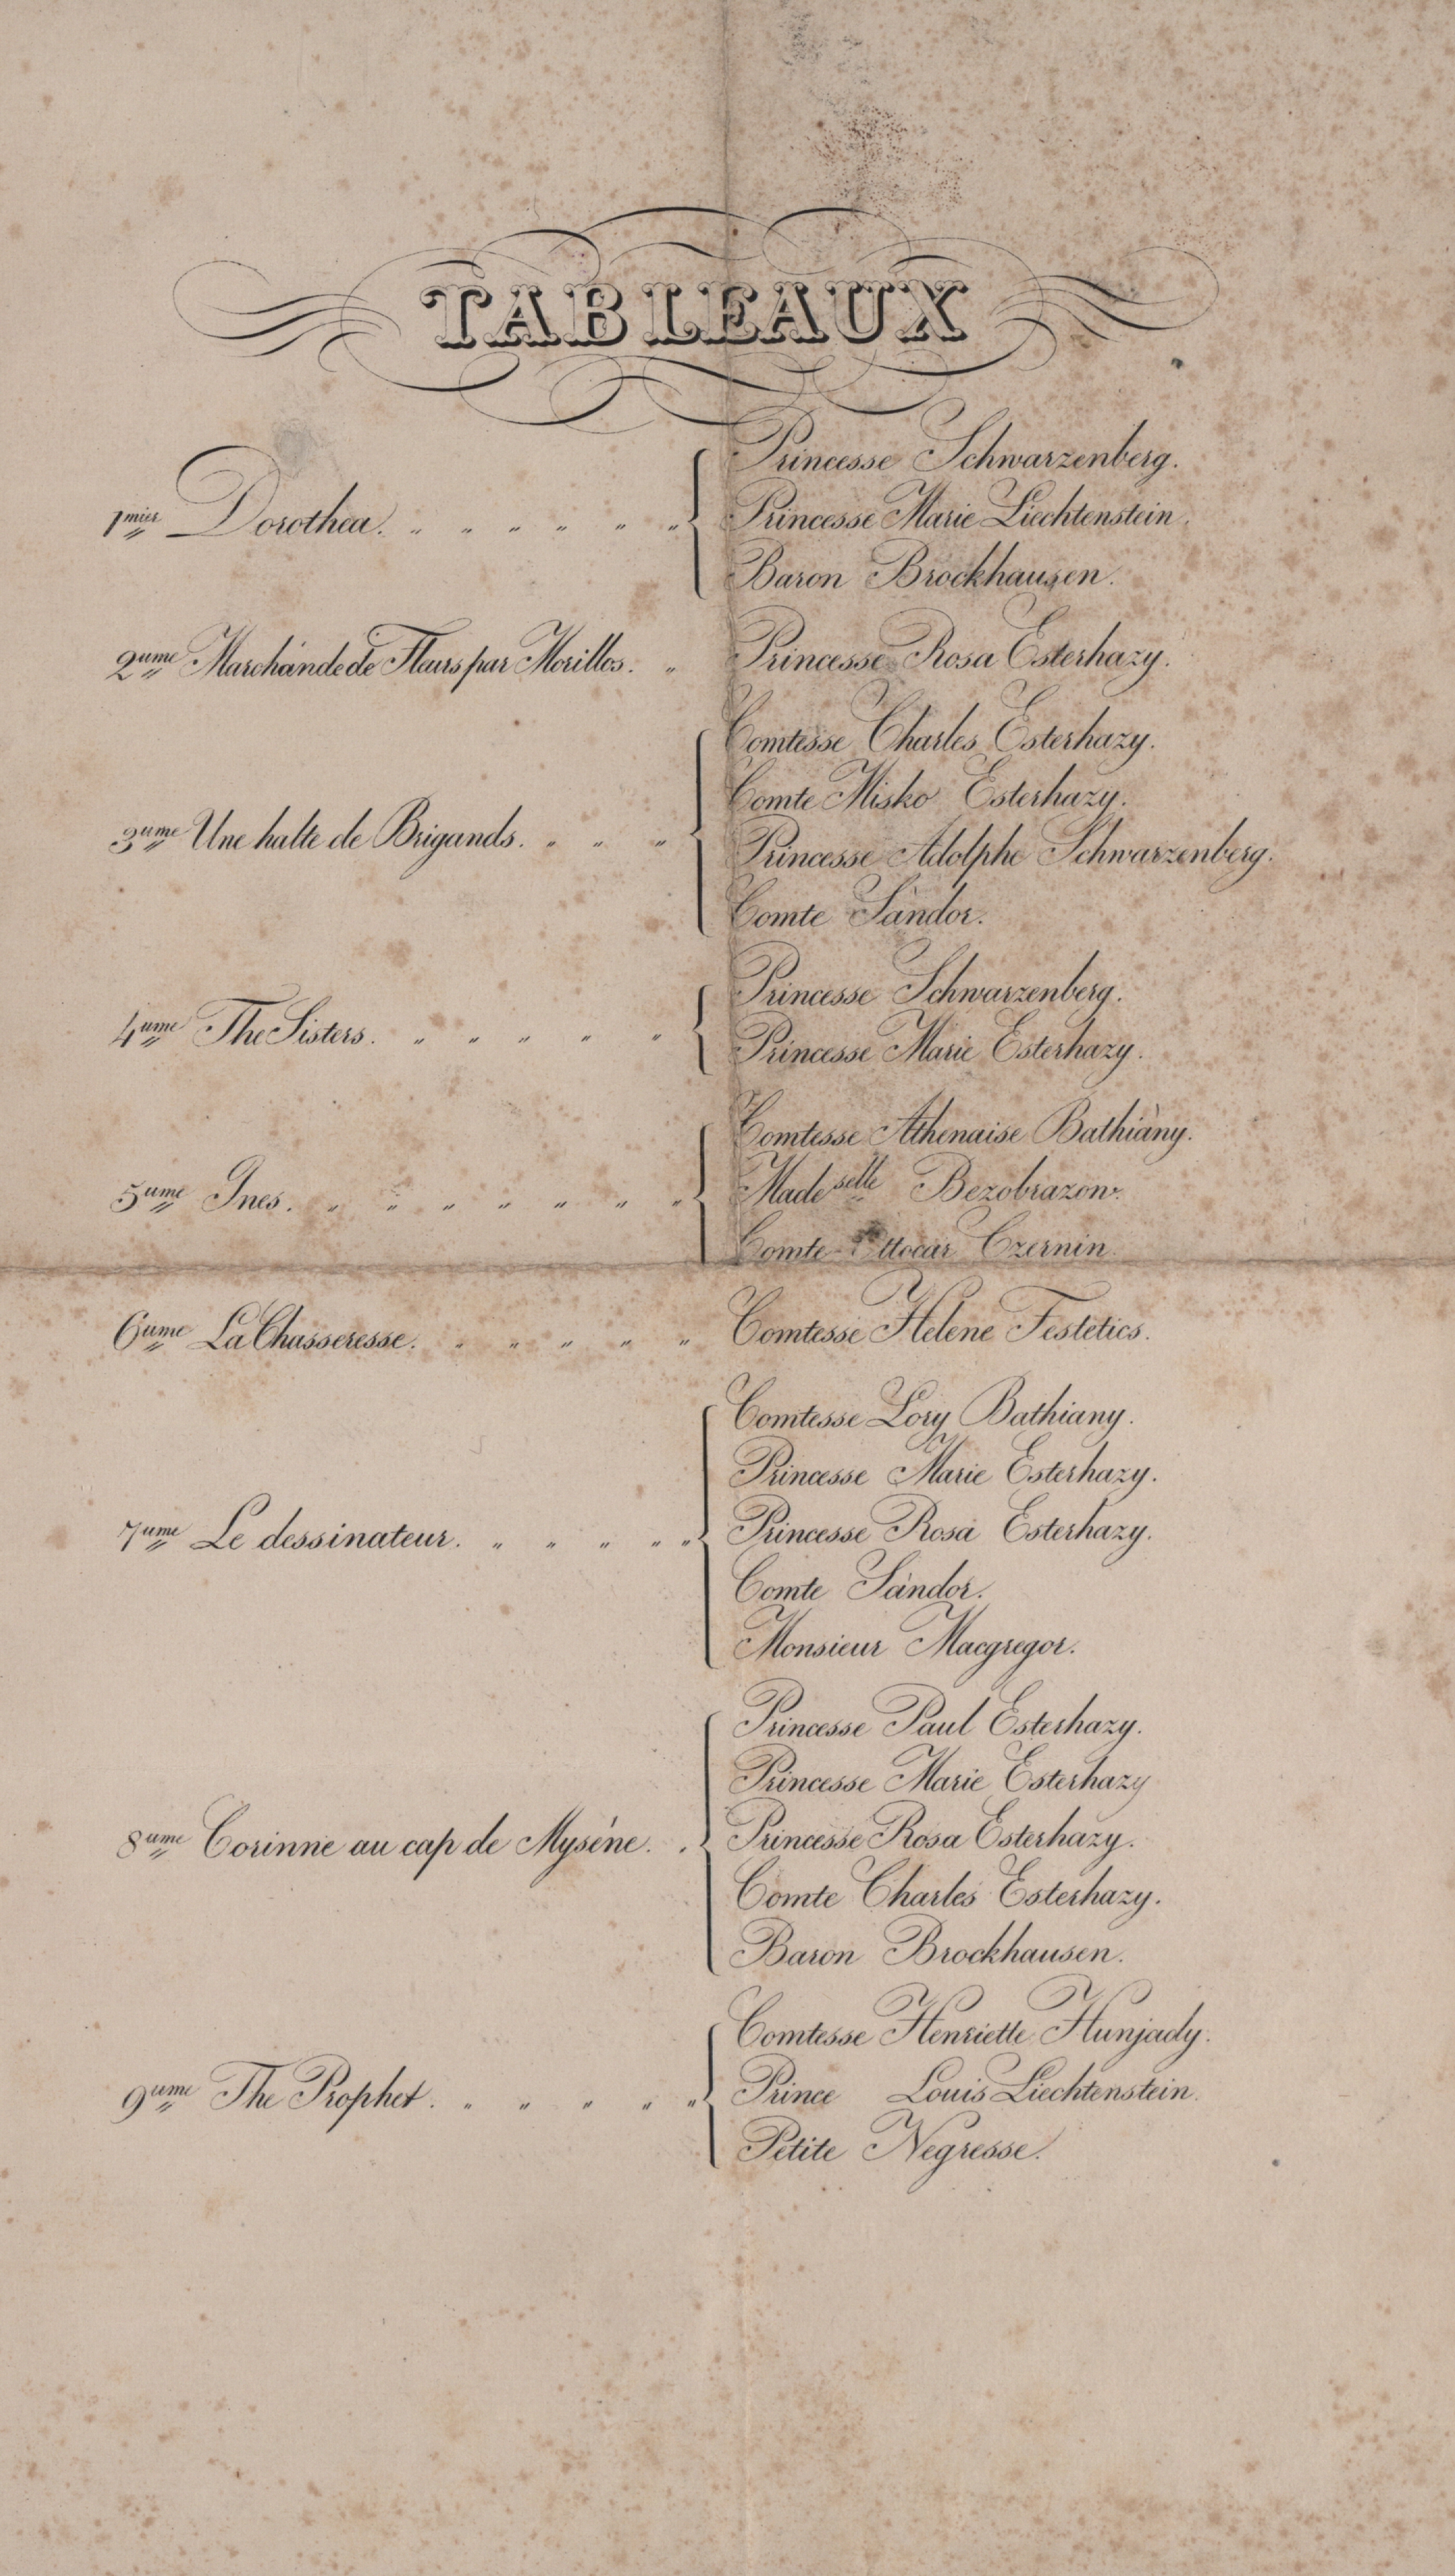 TABLEAUX
1mier Dorothea.
Princesse Schwarzenberg.
Princesse Marie Liechtenstein.
Baron Brockhausen.
2ume Marchande de Fleurs par Morillos.
Princesse Rosa Esterhazy.
3ume Une halte de Brigands.
Comtesse Charles Esterhazy.
Comte Misko Esterhazy.
Princesse Adolphe Schwarzenberg.
Comte Sándor.
4ume The Sisters.
Princesse Schwarzenberg.
Princesse Marie Esterhazy.
5ume Ines.
Comtesse Athenaise Bathiány.
Madeselle Bezobrazow.
Comte Ottocar Czernin.
6ume La Chasseresse.
Comtesse Helene Festetics.
7ume Le dessinateur.
Comtesse Lory Bathiany.
Princesse Marie Esterhazy.
Princesse Rosa Esterhazy.
Comte Sándor.
Monsieur Macgregor.
8ume Corinne au cap de Myséne.
Princesse Paul Esterhazy.
Princesse Marie Esterhazy
Princesse Rosa Esterházy.
Comte Charles Esterhazy.
Baron Brockhausen.
9ume The Prophet.
Comtesse Henriette Hunjady.
Prince Louis Liechtenstein.
Petite Negresse.